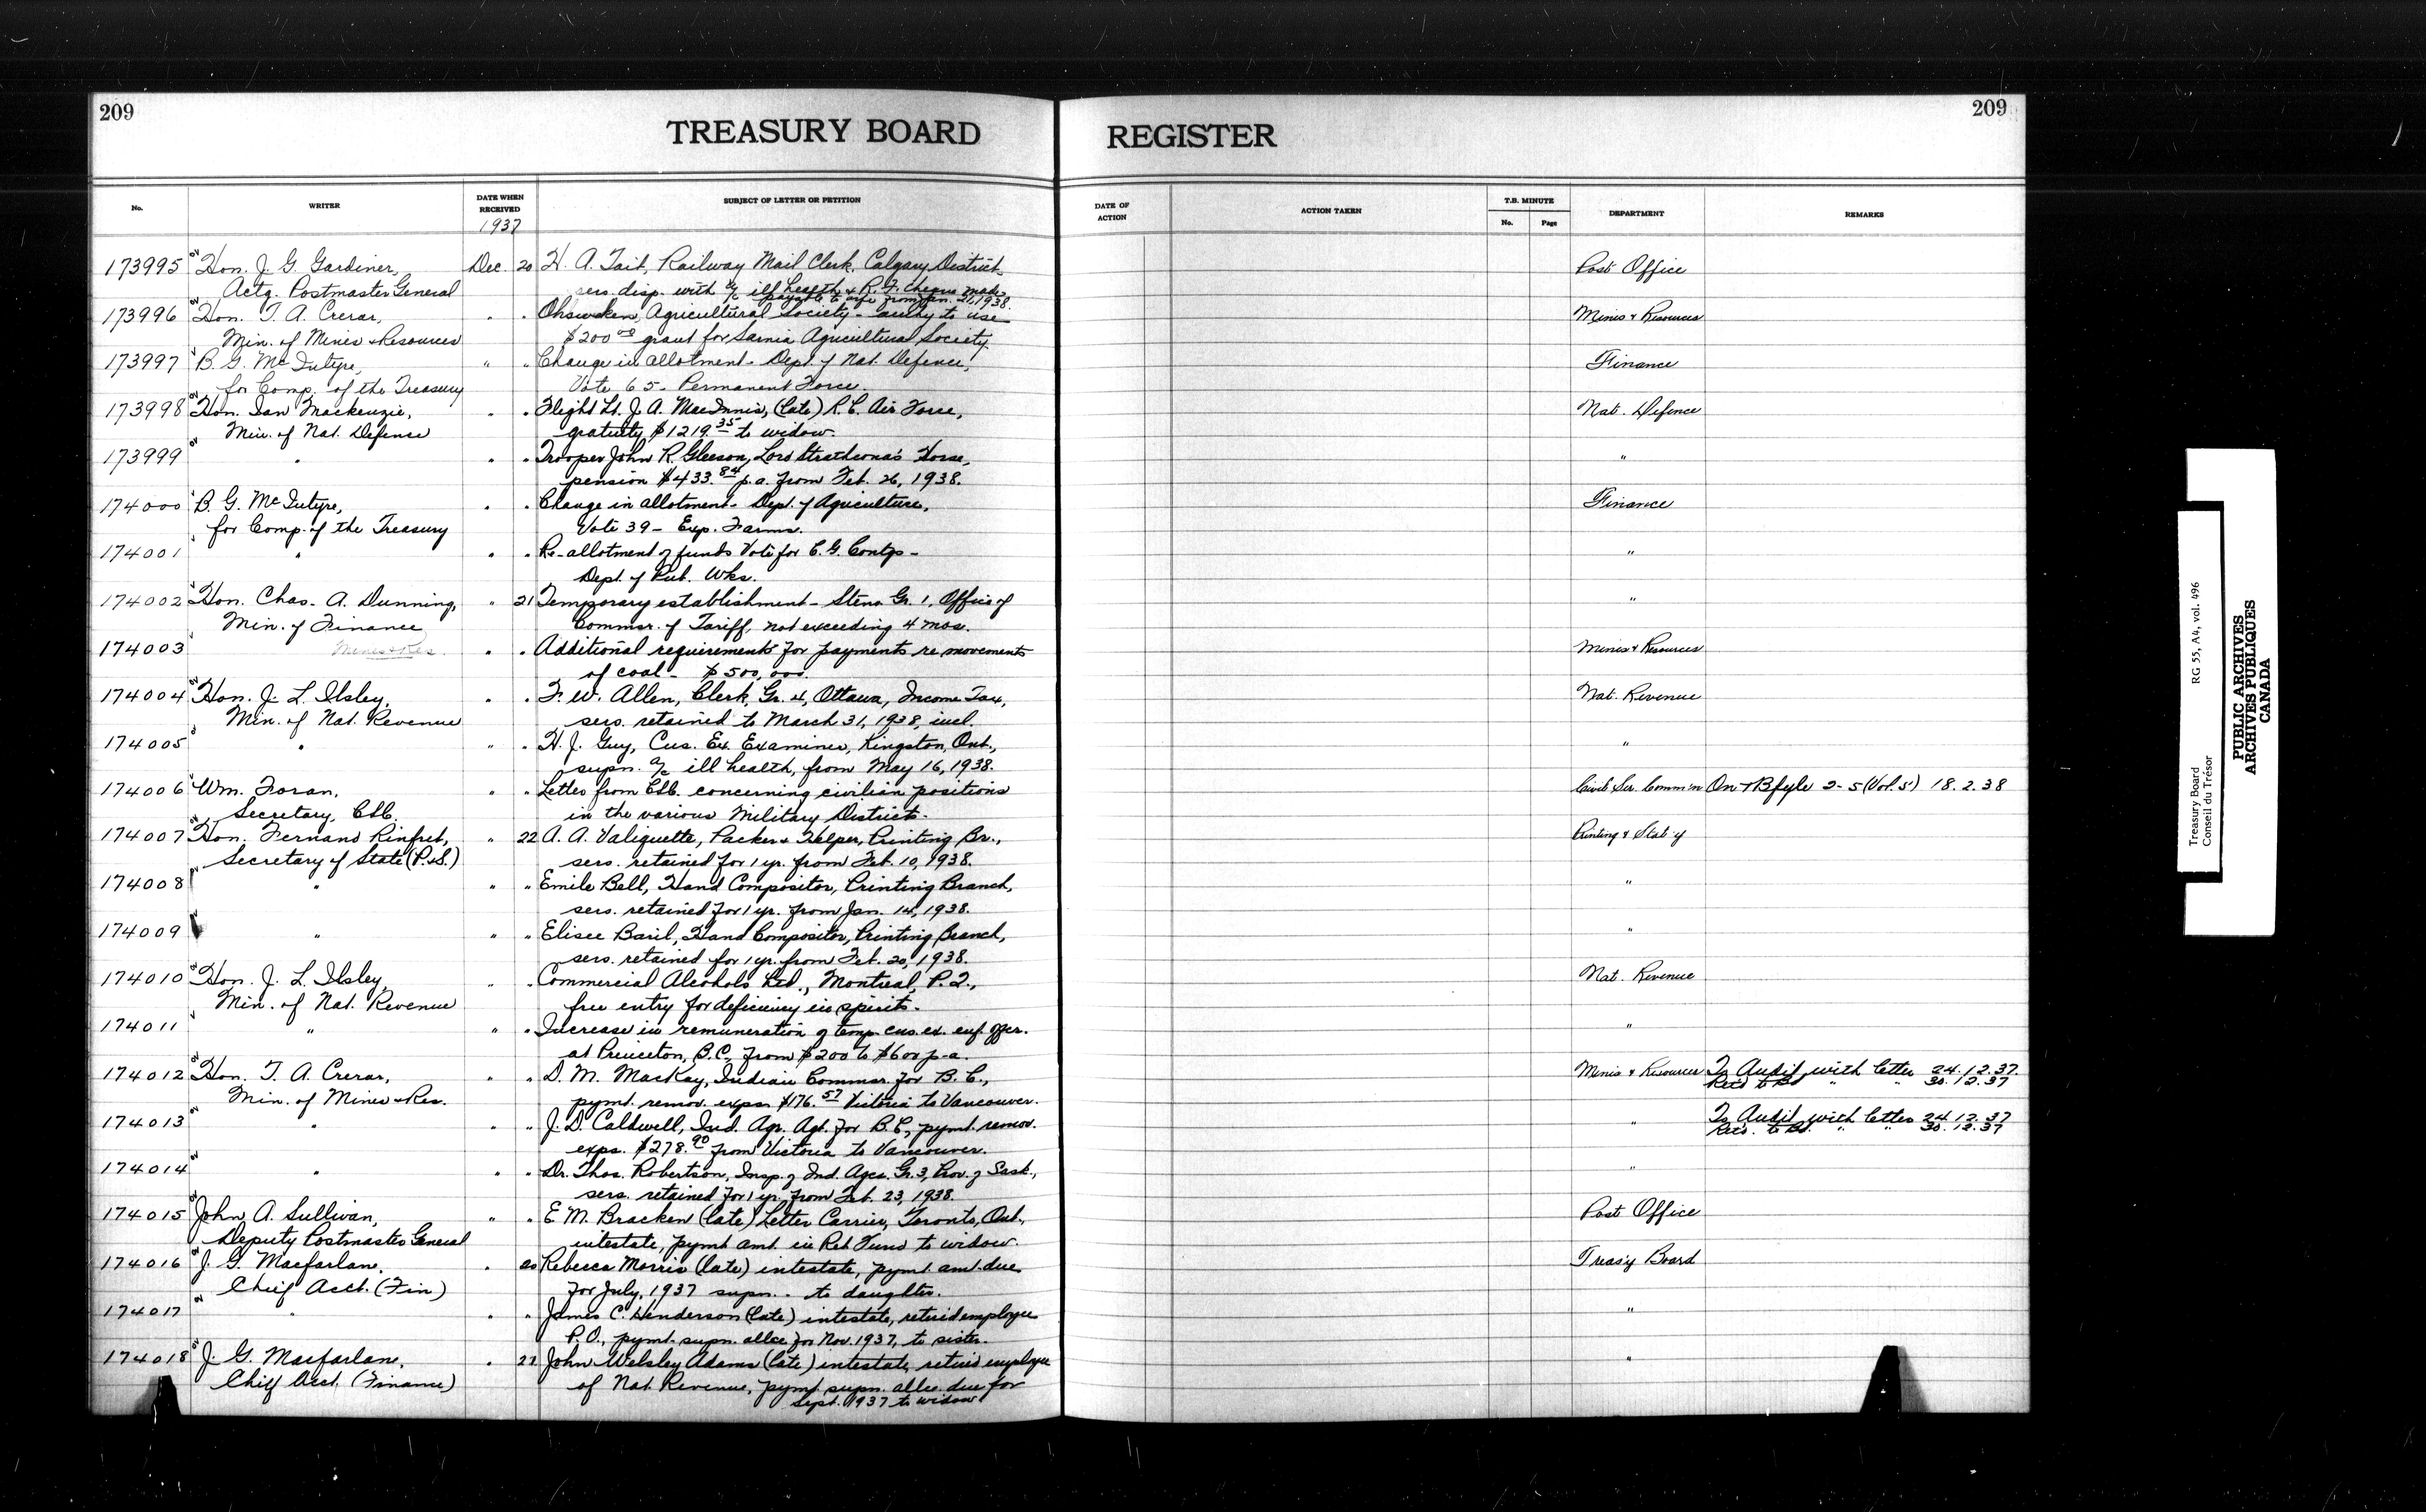 209
209
TREASURY BOARD REGISTER
No.
WRITER
DATE WHEN RECEIVED
1937
SUBJECT OF LETTER OR PETITION
DATE OF ACTION
ACTION TAKEN
T.B. MINUTE
No. Page
DEPARTMENT
REMARKS
173995 Hon. J. G. Gardiner, Dec. 20 H. A. Tait, Railway Mail Clerk, Calgary District Post Office
Actg. Postmaster General sers. disp. with a/c ill health & R. F. cheque made
payable to wife from Jan. 21, 1938
173996 Hon. T. A. Crerar, " " Ohsweken Agricultural Society - authy to use Mines & Resources
Min. of Mines & Resources $200.00 grant for Sarnia Agricultural Society
173997 B. G. McIntyre, " " Change in allotment - Dept. of Nat. Defence, Finance
for Comp. of the Treasury Vote 65 - Permanent Force.
173998 Hon. Ian Mackenzie, " " Flight Lt. J. A. MacInnis, (late) R. C. Air Force, Nat. Defence
Min. of Nat. Defense gratuity $1219.35 to widow.
173999 " " " Trooper John R. Gleeson, Lord Strathcona's Horse, "
pension $433.84 p.a. from Feb. 26, 1938.
174000 B. G. McIntyre, " " Change in allotment - Dept. of Agriculture, Finance
for Comp. of the Treasury Vote 39 - Exp. Farms.
174001 " " " Re-allotment of funds Vote for C. G. Contgs - "
Dept. of Pub. Wks.
174002 Hon. Chas. A. Dunning, " 21 Temporary establishment - Steno Gr. 1, Office of "
Min. of Finance Commsr. of Tariff, not exceeding 4 mos.
174003 Mines & Res. " " Additional requirements for payments re movements Mines & Resources
of coal - $500,000.
174004 Hon. J. L. Ilsley, " " F. W. Allen, Clerk, Gr. 4, Ottawa, Income Tax, Nat. Revenue
Min. of Nat. Revenue sers. retained to March 31, 1938, incl.
174005 " " " H. J. Guy, Cus. Ex. Examiner, Kingston, Ont., "
supn. a/c ill health, from May 16, 1938.
174006 Wm. Foran, " " Letter from CSC. concerning civilian positions Civil Ser. Comm'n On TB fyle 2-5 (Vol. 5) 18.2.38
Secretary, CSC. in the various Military Districts.
174007 Hon. Fernand Rinfret, " 22 A. A. Valiquette, Packer & Helper, Printing Br., Printing & Stat'y
Secretary of State (P.&S.) sers. retained for 1 yr. from Feb. 10, 1938.
174008 " " " Emile Bell, Hand Compositor, Printing Branch, "
sers. retained for 1 yr. from Jan. 14, 1938.
174009 " " " Elisee Baril, Hand Compositor, Printing Branch, "
sers. retained for 1 yr. from Feb. 20, 1938.
174010 Hon. J. L. Ilsley, " " Commercial Alcohols Ltd., Montreal, P. Q., Nat. Revenue
Min. of Nat. Revenue free entry for deficiency in spirits.
174011 " " " Increase in remuneration of temp. cus. ex. enf. offcr. "
at Princeton, B.C., from $200 to $600 p.a.
174012 Hon. T. A. Crerar, " " D. M. MacKay, Indian Commsr. for B. C., Mines & Resources To Audit with letter 24.12.37.
Min. of Mines & Res. pymt. remov. exps. $176.57 Victoria to Vancouver. Rec'd to Bd " " 30.12.37
174013 " " " J. D. Caldwell, Ind. Agr. Agt. for B.C., pymt. remov. " To Audit with letter 24.12.37
exps. $278.90 from Victoria to Vancouver. Recd. to Bd. " " 30.12.37
174014 " " " Dr. Thos. Robertson, Insp. of Ind. Ages. Gr. 3, Prov. of Sask., "
sers. retained for 1 yr. from Feb. 23, 1938.
174015 John A. Sullivan, " " E. M. Bracken (late) Letter Carrier, Toronto, Ont., Post Office
Deputy Postmaster General intestate, pymt amt. in Ret Fund to widow.
174016 J. G. Macfarlane, " 20 Rebecca Morris (late) intestate, pymt. amt. due Treas'y Board
Chief Acct. (Fin) for July, 1937 supn. . to daughter.
174017 " " " James C. Henderson (late) intestate, retired employee "
P.O., pymt. supn. allce for Nov. 1937, to sister.
174018 J. G. Macfarlane, " 22 John Welsley Adams (late) intestate, retired employee "
Chief Acct. (Finance) of Nat. Revenue, pymt. supn. allce. due for
Sept. 1937 to widow
Treasury Board RG 55, A4, vol. 496
Conseil du Trésor
PUBLIC ARCHIVES
ARCHIVES PUBLIQUES
CANADA